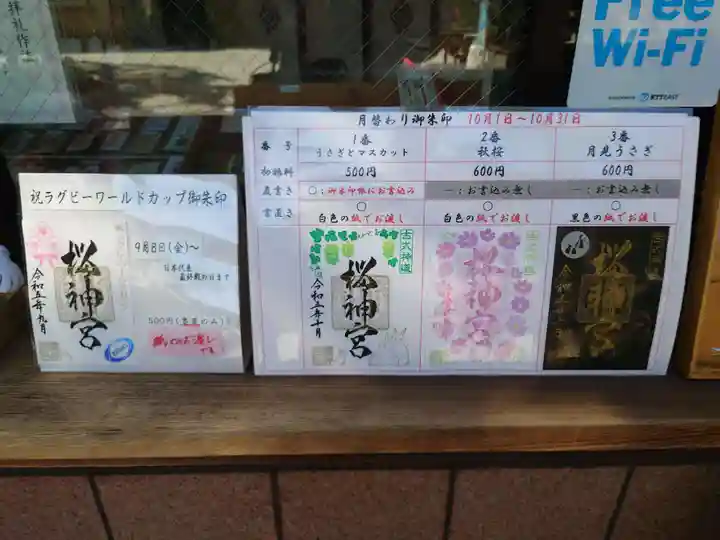 拝礼作法
Free
Wi-Fi
祝ラグビーワールドカップ御朱印
9月8日(金)～
日本代表
最終戦の日まで
500円(書置のみ)
紙でのお渡しです
桜神宮
令和五年九月
月替わり御朱印 10月1日～10月31日
番号 1番 うさぎとマスカット 2番 秋桜 3番 月見うさぎ
初穂料 500円 600円 600円
直書き ○:御朱印帳にお書込み ー:お書込み無し ー:お書込み無し
書置き ○ 白色の紙でお渡し ○ 白色の紙でお渡し ○ 黒色の紙でお渡し
古式神道
桜神宮
令和五年十月
古式神道
桜神宮
古式神道
桜神宮